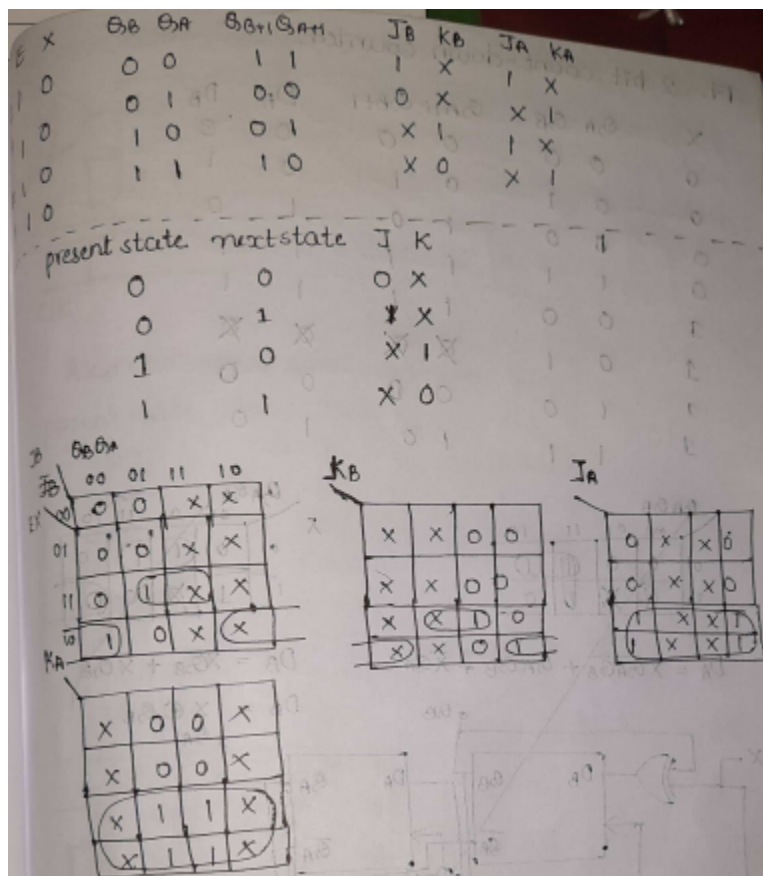 E X QB QA QB+1 QA+1 JB KB JA KA
1 0 0 0 1 1 1 X 1 X
1 0 0 1 0 0 0 X X 1
1 0 1 0 0 1 X 1 1 X
1 0 1 1 1 0 X 0 X 1
present state next state J K
0 0 0 X
0 1 1 X
1 0 X 1
1 1 X 0
QB QA
JB 00 01 11 10
EX
00 0 0 X X
01 0 0 X X
11 0 1 X X
10 1 0 X X
KB
X X 0 0
X X 0 0
X X 1 0
X X 0 1
JA
0 X X 0
0 X X 0
1 X X 1
1 X X 1
KA
X 0 0 X
X 0 0 X
X 1 1 X
X 1 1 X